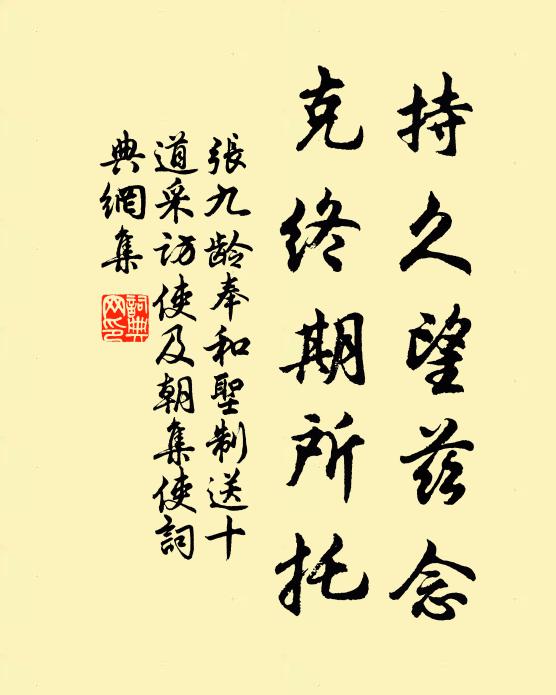 持久望兹念
克终期所托
張九龄奉和聖制送十
道采访使及朝集使詞
典網集
詞典
网印